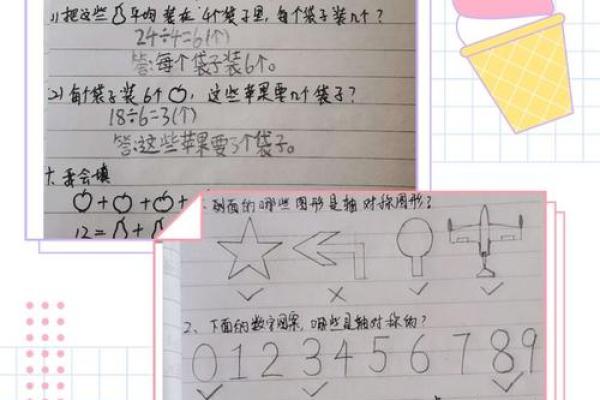 (1)把这些平均装在4个袋子里,每个袋子装几个?
24÷4=6(个)
答:每个袋子装6个。
(2)每个袋子装6个,这些苹果要几个袋子?
18÷6=3(个)
答:这些苹果要3个袋子。
十、我会填
+ + +
12= +
1、下面的哪些图形是轴对称图形?
✓ × ✓ ✓
2、下面的数字图案,哪些是轴对称的?
0 1 2 3 4 5 6 7 8 9
✓ ✓ ✓